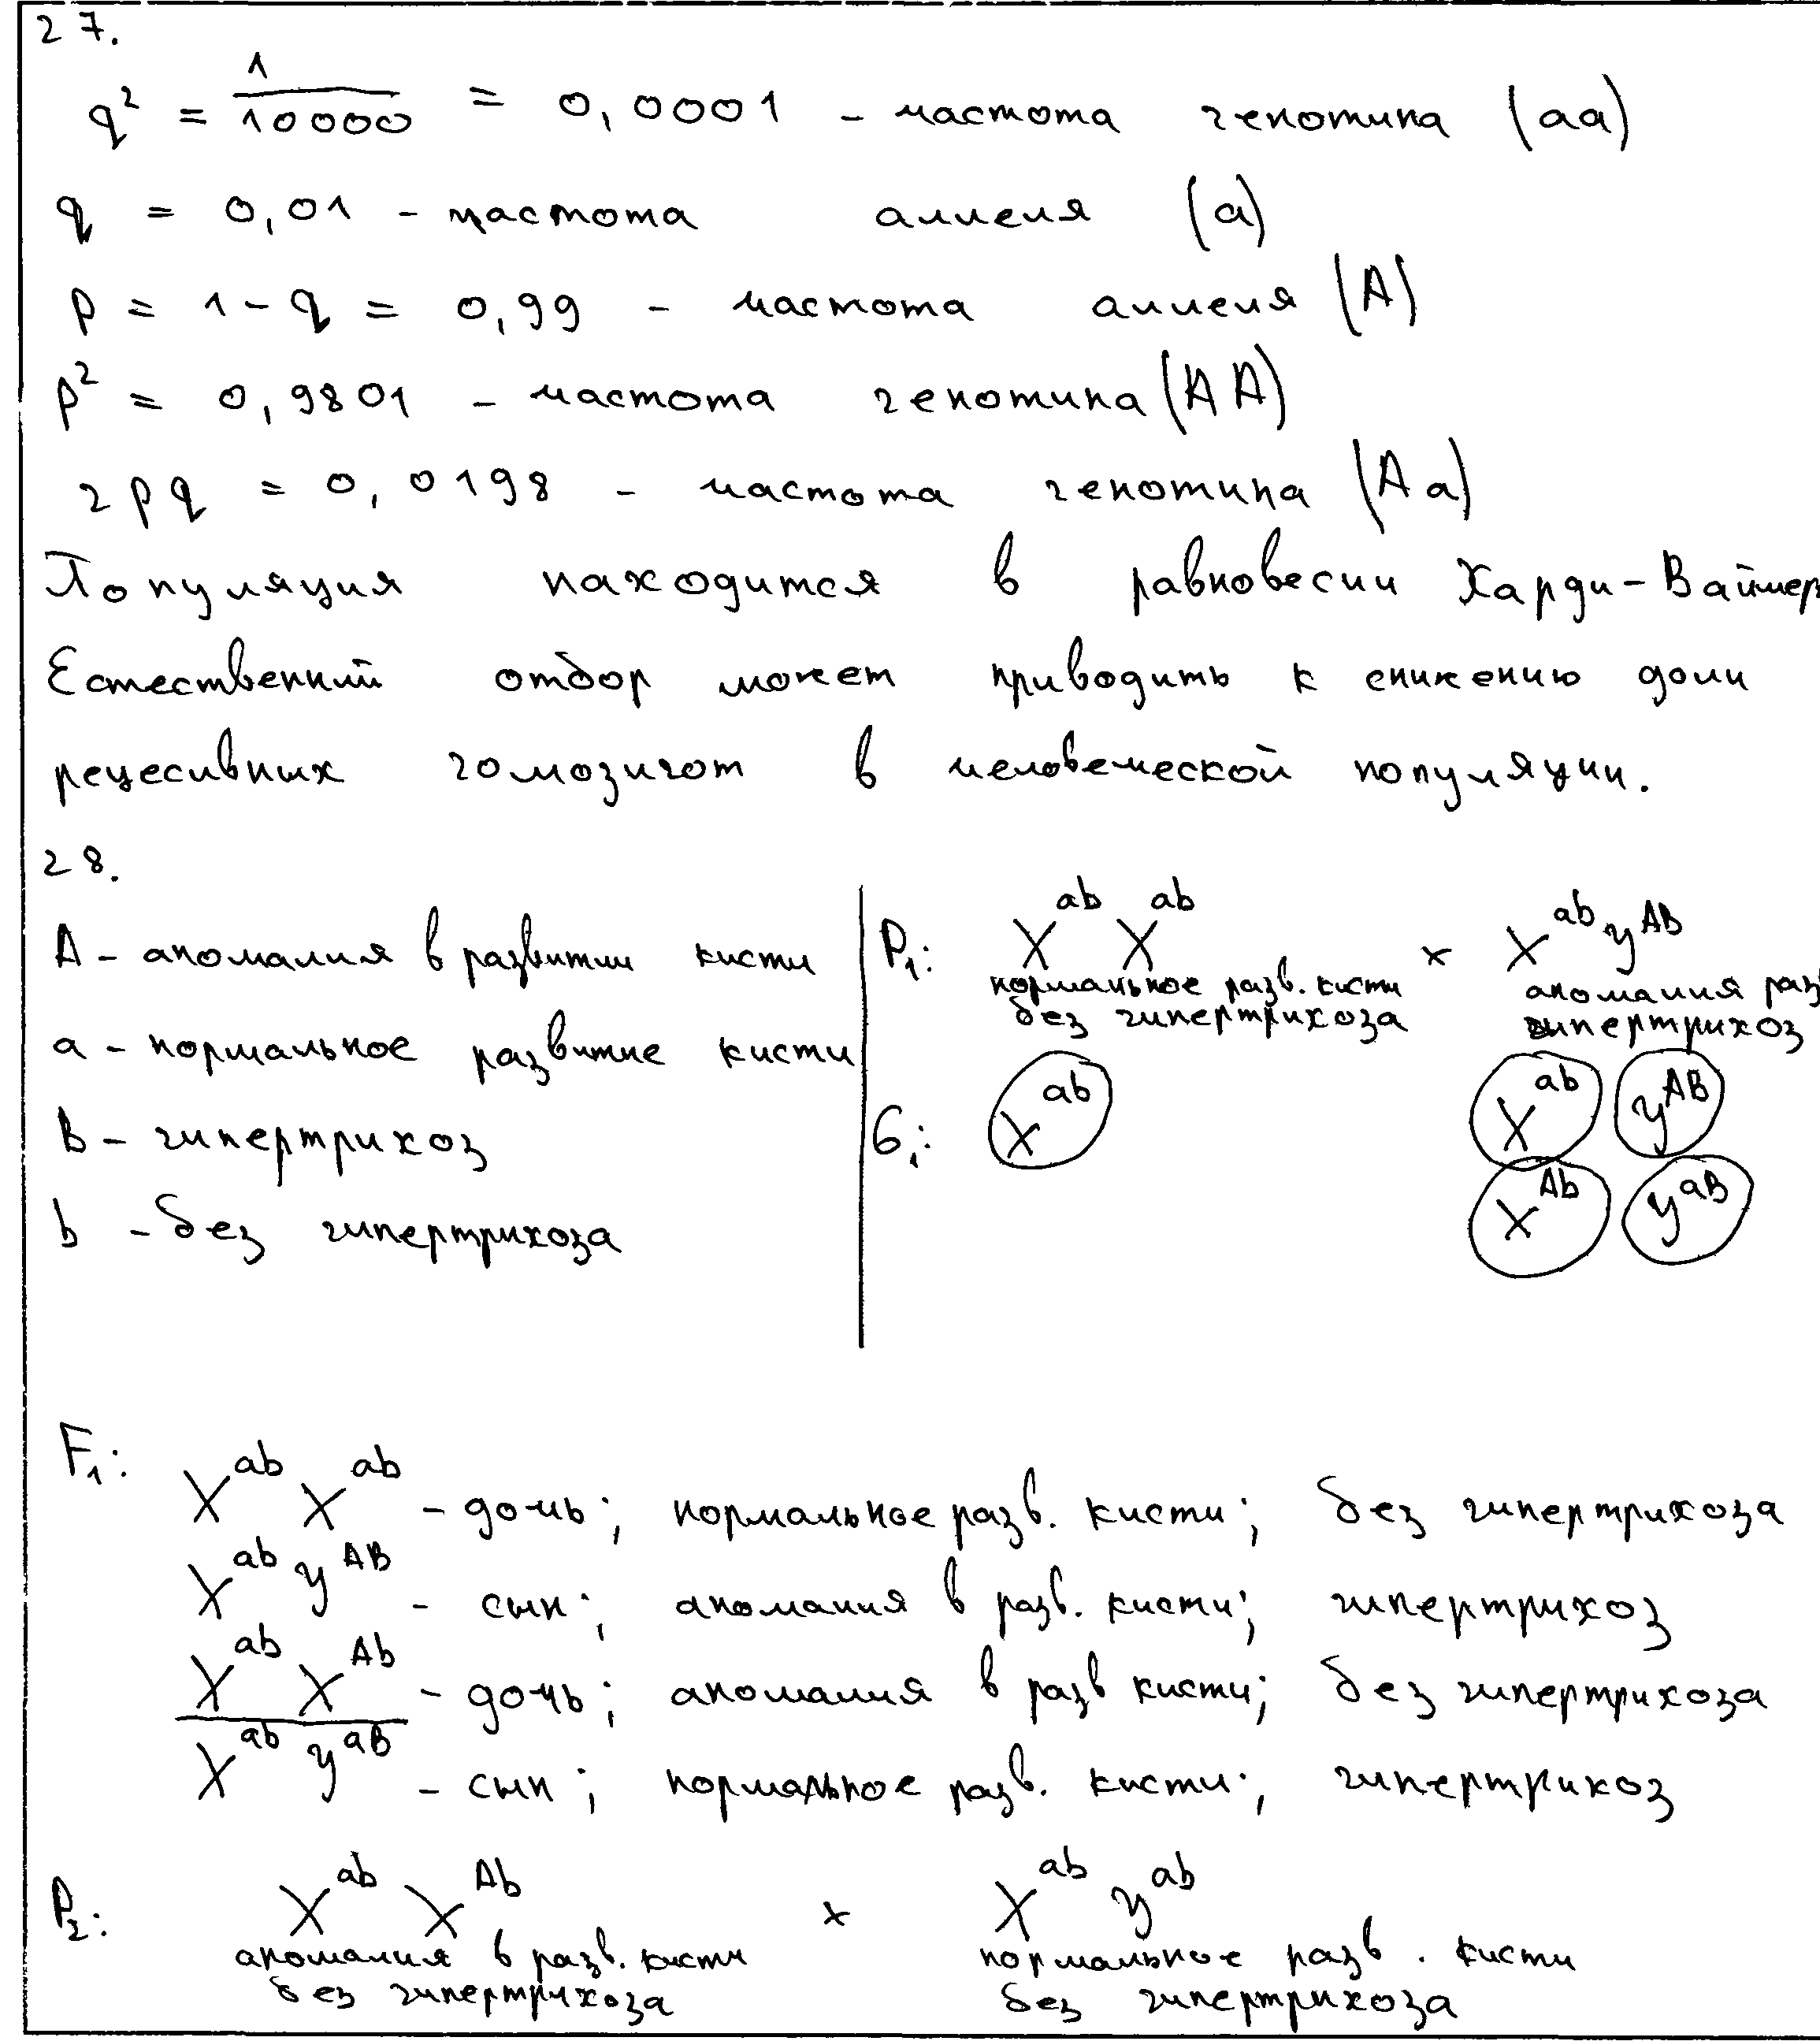 27.
q² = 1/10000 = 0,0001 - частота генотипа (aa)
q = 0,01 - частота аллеля (a)
p = 1 - q = 0,99 - частота аллеля (A)
p² = 0,9801 - частота генотипа (AA)
2pq = 0,0198 - частота генотипа (Aa)
Популяция находится в равновесии Харди-Вайнер
Естественный отбор может приводить к снижению доли
рецесивных гомозигот в человеческой популяции.
28.
A - аномалия в развитии кисти
a - нормальное развитие кисти
B - гипертрихоз
b - без гипертрихоза
P₁: X^ab X^ab × X^ab Y^AB
нормальное разв. кисти аномалия раз
без гипертрихоза гипертрихоз
G₁: X^ab X^ab Y^AB
X^Ab Y^aB
F₁:
X^ab X^ab - дочь; нормальное разв. кисти; без гипертрихоза
X^ab Y^AB - сын; аномалия в разв. кисти; гипертрихоз
X^ab X^Ab - дочь; аномалия в разв кисти; без гипертрихоза
X^ab Y^aB - сын; нормальное разв. кисти; гипертрихоз
P₂: X^ab X^Ab × X^ab Y^ab
аномалия в разв. кисти нормальное разв. кисти
без гипертрихоза без гипертрихоза